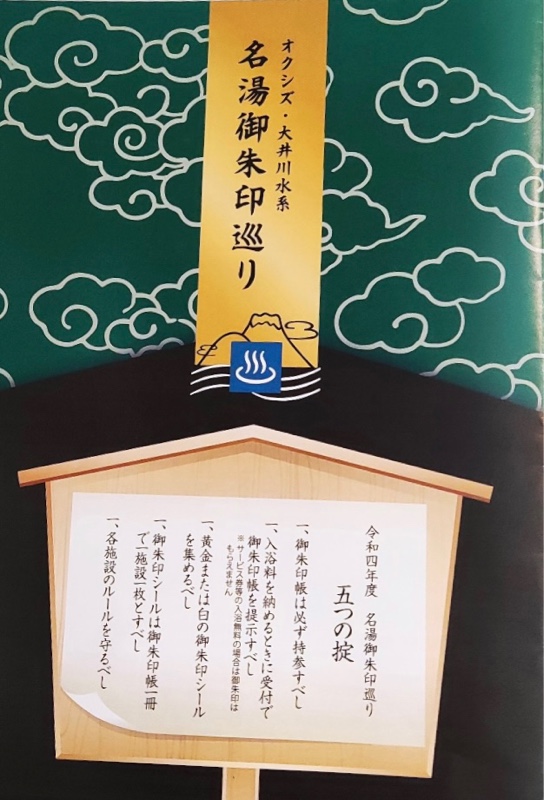 オクシズ・大井川水系
名湯御朱印巡り
令和四年度　名湯御朱印巡り
五つの掟
一、御朱印帳は必ず持参すべし
一、入浴料を納めるときに受付で
御朱印帳を提示すべし
※サービス券等の入浴無料の場合は御朱印は
もらえません
一、黄金または白の御朱印シール
を集めるべし
一、御朱印シールは御朱印帳一冊
で一施設一枚とすべし
一、各施設のルールを守るべし